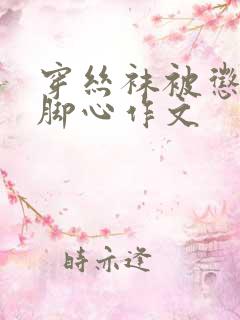 穿丝袜被惩
脚心作文
时示逢